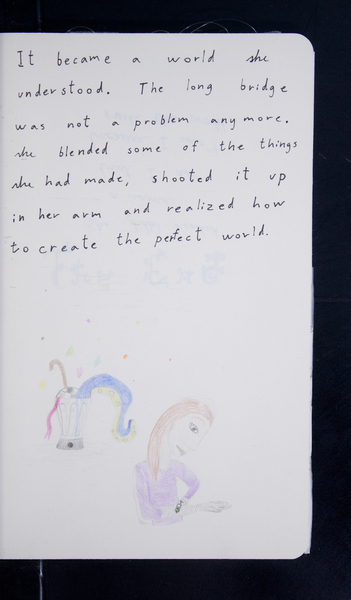 It became a world she
understood. The long bridge
was not a problem anymore.
she blended some of the things
she had made, shooted it up
in her arm and realized how
to create the perfect world.